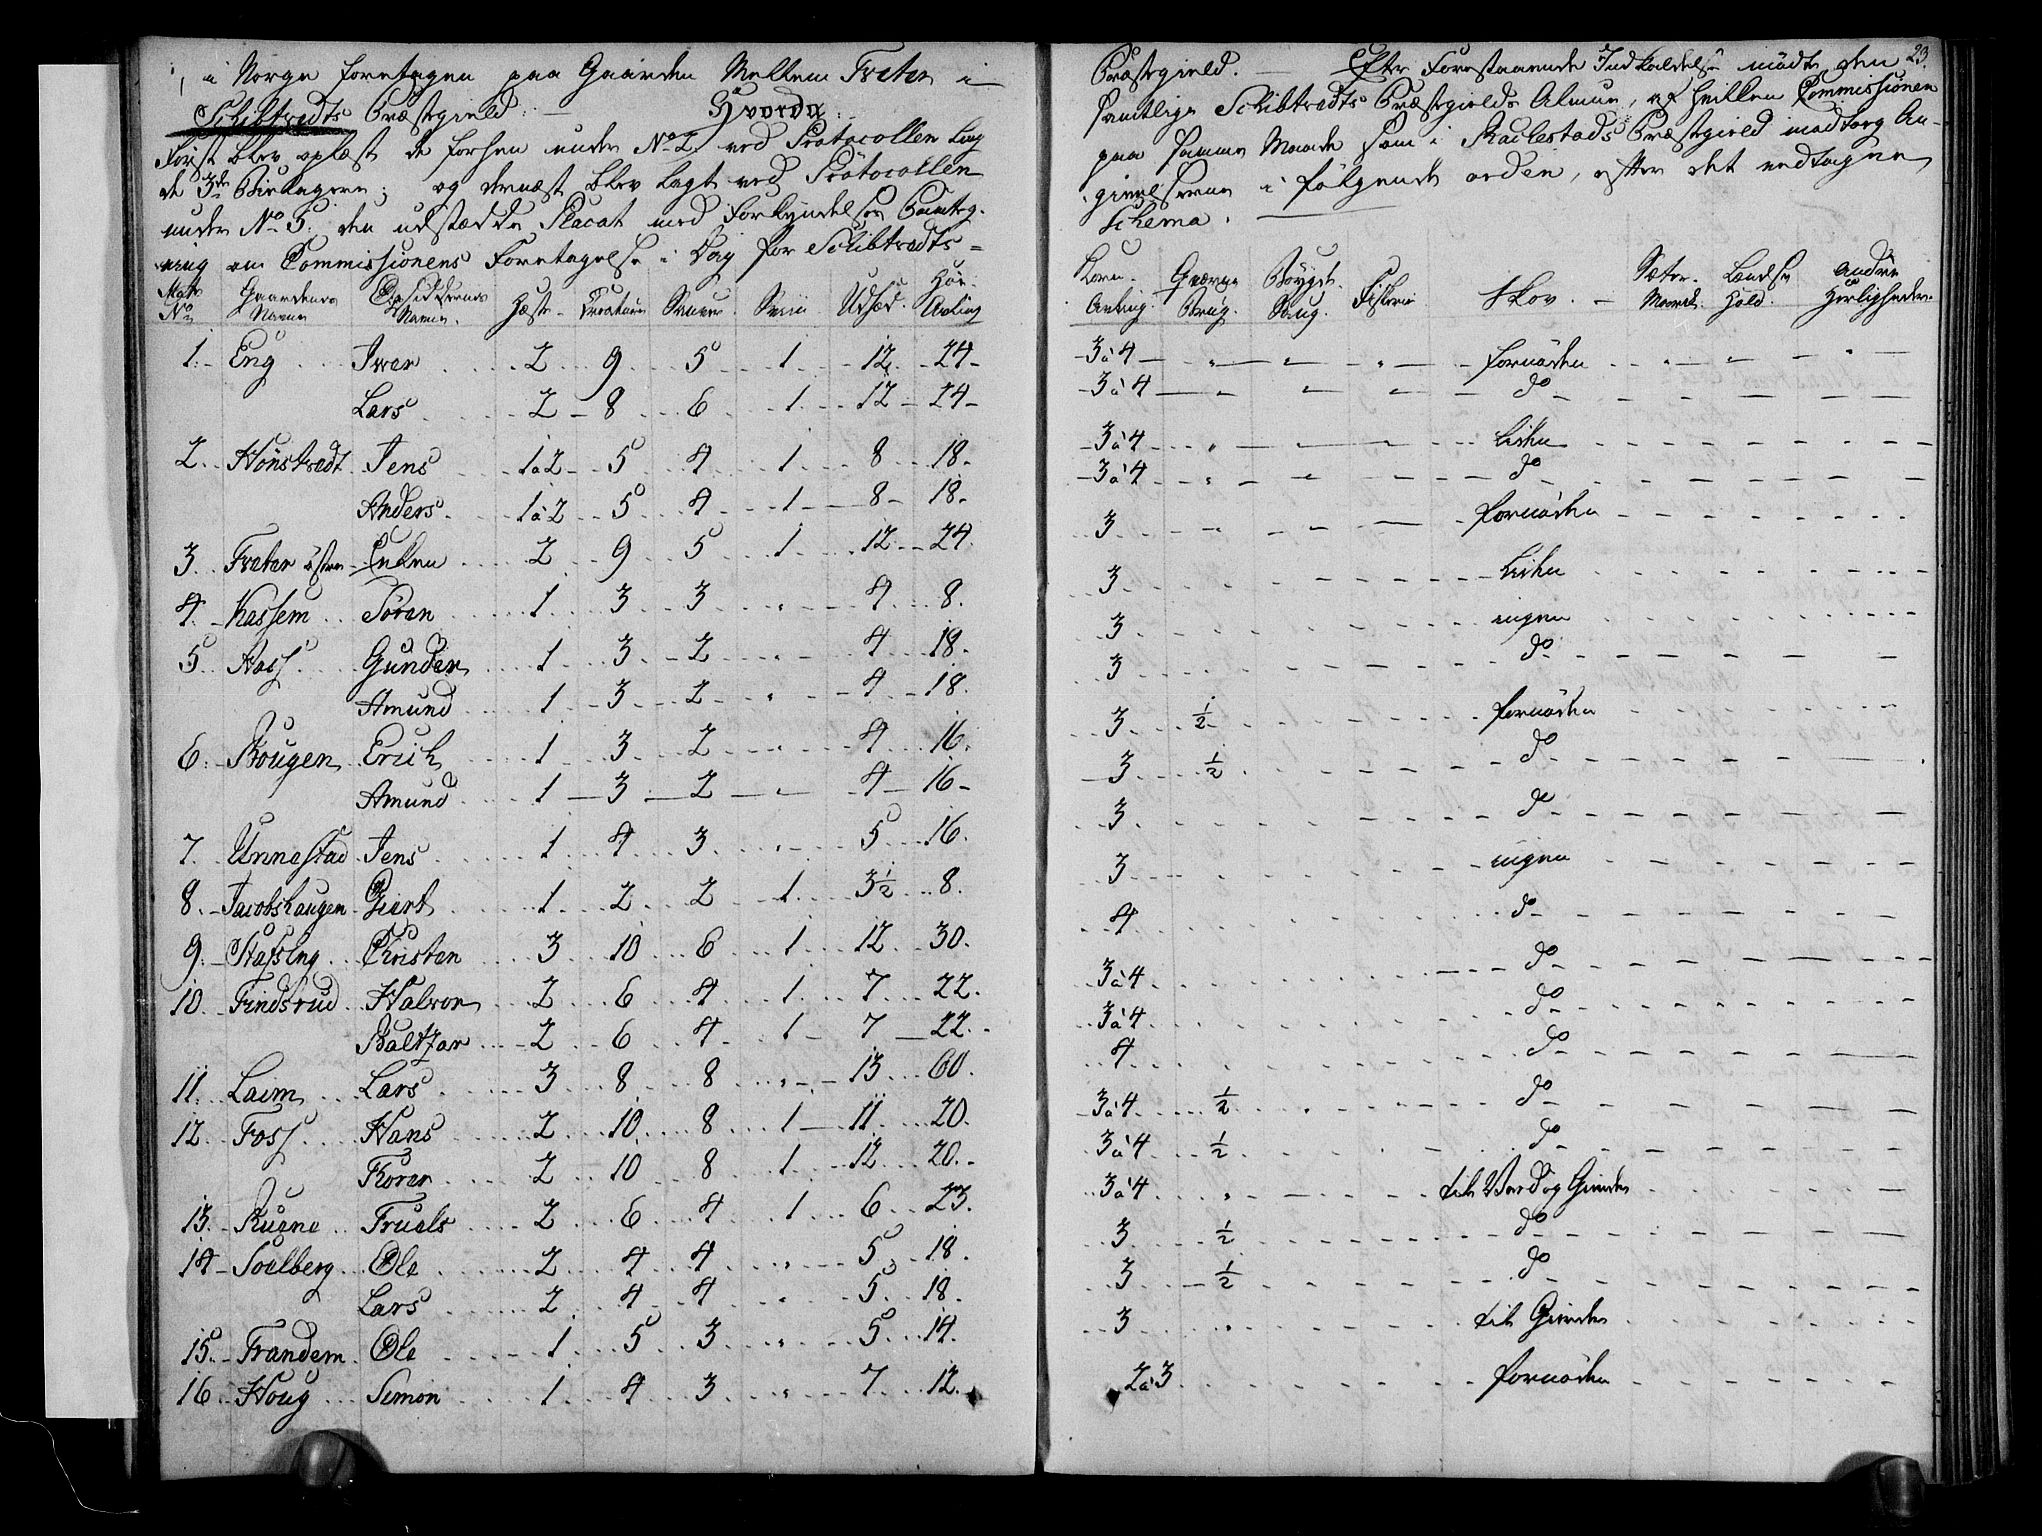 i Norge foretagen paa Gaarden Mellem Freter i
Schibtvedts Præstegield. — Hvorda
Først blev oplæst de forhen under No 2 ved Protocollen lag
de 3de Bielagene; og dernæst blev lagt ved Protocollen
under No 5. den udstædde Placat med Forkyndelses Paateg-
ning om Commissionens Foretagelse i Dag for Schibtvedts =
Matr No Gaardenes Navne Opsiddernes Navne. Heste Creature Smaaer Sviin Udsæd. Høe Avling
1. Eng Iver 2 9 5 1 12 24
Lars 2 8 6 1 12 24
2. Hönstvedt Jens 1 a 2 5 4 1 8 18
Anders 1 a 2 5 4 1 8 18
3. Freter östre Enken 2 9 5 1 12 24
4. Kassem Sören 1 3 3 " 4 8
5 Aass Gunder 1 3 2 " 4 18
Amund 1 3 2 " 4 18
6. Rougen Erich 1 3 2 " 4 16
Amund 1 3 2 " 4 16
7. Unnestad Jens 1 4 3 " 5 16
8. Jacobshaugen Giert 1 2 2 1 3½ 8
9. Christen 3 10 6 1 12 30
10. Findsrud Halvor 2 6 4 1 7 22
Baltzar 2 6 4 1 7 22
11. Laim Lars 3 8 8 " 13 60
12. Foss Hans 2 10 8 1 11 20
Torer 2 10 8 1 12 20
13. Ruene Truels 2 6 4 1 6 23
14 Soelberg Ole 2 4 4 " 5 18
Lars 2 4 4 " 5 18
15. Trandem Ole 1 5 3 " 5 14
16 Houg Simon 1 4 3 " 7 12
23.
Præstegield. — Efter Forestaaende Indkaldelse mödte den
samtlige Schibtvedts Præstegields Almue, af hvilken Commissionen
paa samme Maade som i Rachestads Præstegield modtog An-
givelserne i følgende orden, efter det vedtagne
Schema.
Korn Avling. Qværne Brug. Bøygde Saug. Fiskerie Skov. Sæter Havnet Landskyld Andre Herligheder
3 a 4 " " " fornöden
3 a 4 do
3 a 4 " Liden
3 a 4 " do
3 fornöden
3 Liden
3 ingen
3 do
3 ½ fornöden
3 ½ do
3 do
3 ingen
4 do
3 a 4 do
3 a 4 do
4 do
3 a 4 ½ do
3 a 4 ½ do
3 a 4 " til Ved og Gierder
3 ½ do
3 ½ do
3 " til Gierder
2 a 3 fornöden